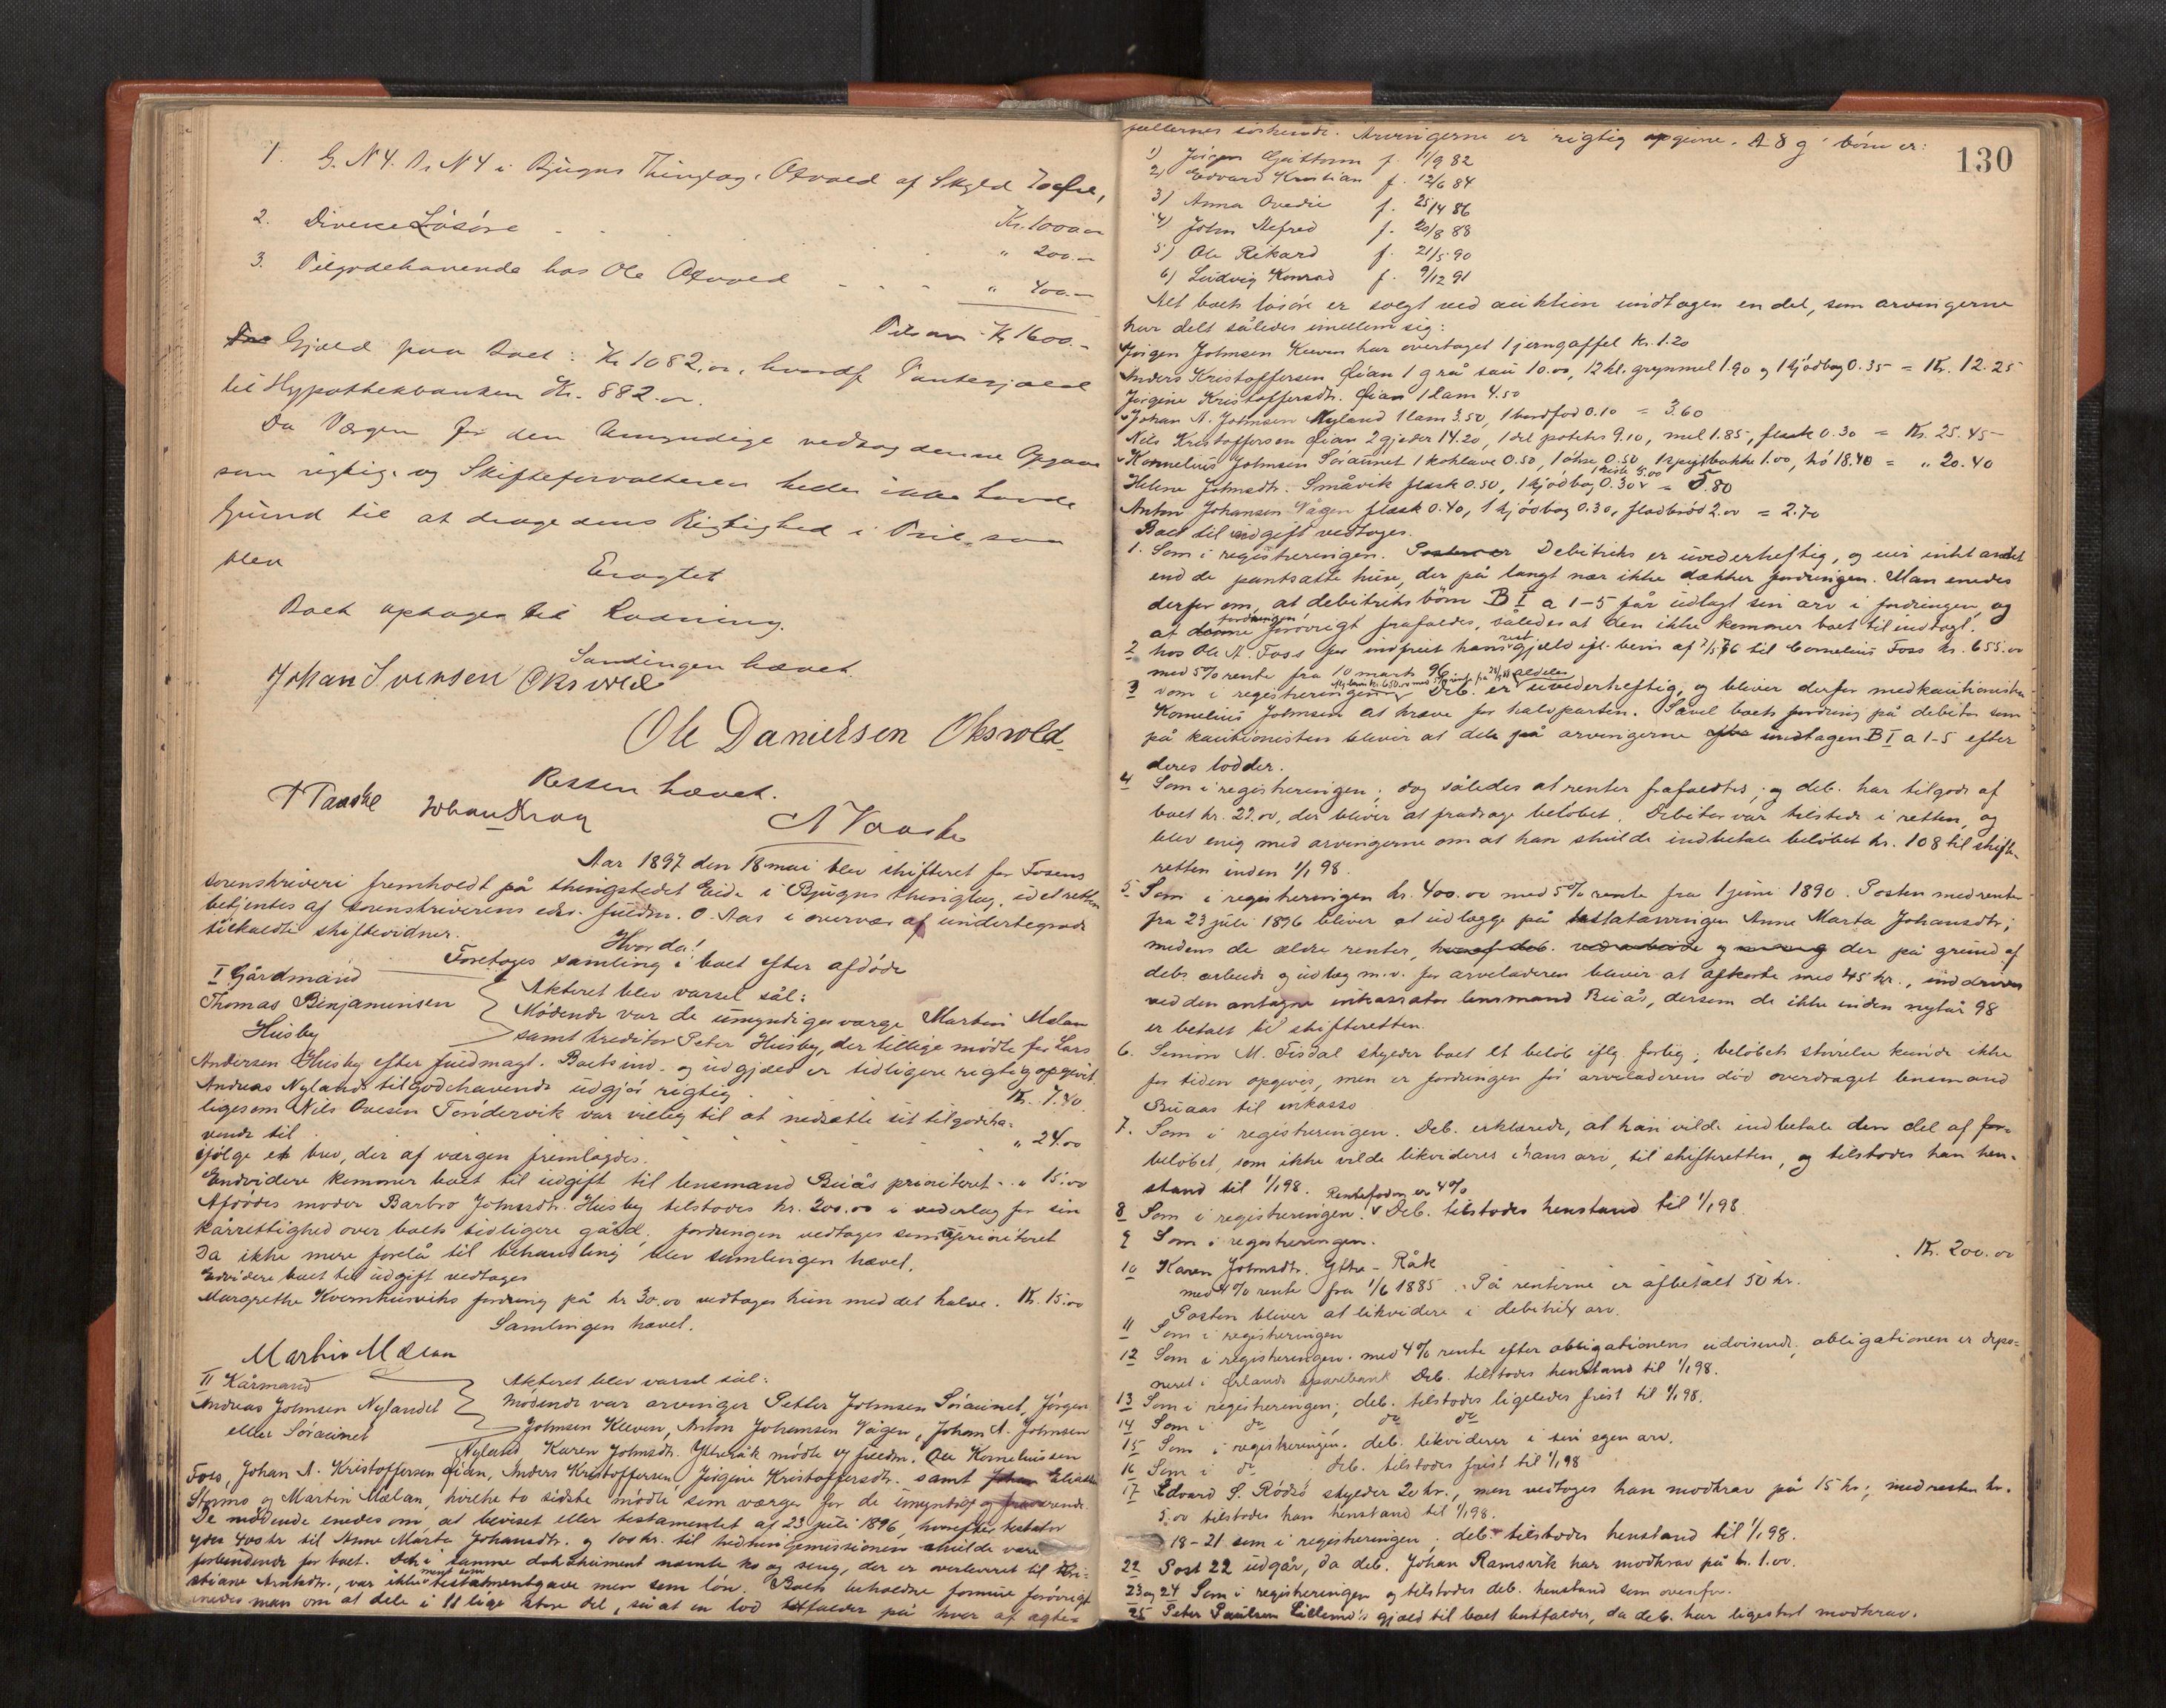 1. G. N 4. B. N 4 i Bjugns Thinglag, Oxvold af Skyld
Kr. 1000.00
2. Diverse Løsøre " 200.–
3. Tilgodehavende hos Ole Oxvold " 400.–
Tilsam. Kr. 1600.–
Gjæld paa Boet: Kr 1082.00, hvoraf Pantegjæld
til Hypothekbanken Kr. 882.00.
Da Værgen for den Umyndige vedtog denne Opgave
som rigtig, og Skifteforvalteren heller ikke havde
Grund til at drage dens Rigtighed i Tvil, saa
blev
Eragtet
Boet optages til Lodning.
Samlingen hævet.
Johan Svensen Oksvold
Ole Danielsen Oksvold
Retten hævet.
A Vaaske
Aar 1897 den 18 mai blev skifteret for Fosens
sorenskriveri fremholdt på thingstedet Eide i Bjugns thinglag, idet retten
betjentes af sorenskriverens edsv. fuldm. O. Aas i overvær af undertegnede
tilkaldte skiftevidner.
Hvor da!
Foretoges samling i boet efter afdøde
I Gårdmand
Thomas Benjaminsen
Husby
Akteret blev varsel sål:
Mødende var de umyndiges værge Martin Mælan
samt kreditor Peter Husby, der tillige mødte for Lars
Andersen Husby efter fuldmagt. Boets ind- og udgjæld er tidligere rigtig opgivet.
Andreas Nylands tilgodehavende udgjør rigtig Kr. 7.40.
ligesom Nils Ovesen Tøndervik var villig til at nedsætte sit tilgodeha-
vende til " 24.00
ifølge et brev, der af værgen fremlagdes.
Endvidere kommer boet til udgift til lensmand Buås prioriteret " 15.00
Afdødes moder Barbro Johnsdr. Husby tilstodes kr. 200.00 i vederlag for sin
kårrettighed over boets tidligere gård, fordringen vedtages som uprioriteret
Da ikke mere forelå til behandling blev samlingen hævet.
Endvidere boet til udgift vedtages
Margrethe Kvernhusviks fordring på kr 30.00 vedtages hun med det halve. Kr. 15.00
Samlingen hævet.
Martin Mælan
II Kårmand
Andreas Johnsen Nylandet
eller Søraunet
Akteret blev varsel sål:
Mødende var arvinger Petter Johnsen Søraunet, Jørgen
Johnsen Kleven, Anton Johansen Vågen, Johan A. Johnsen
Nyland, Karen Johnsdr. Ytteråk mødte ved fuldm. Ole Korneliussen
Foss, Johan A. Kristoffersen Øian, Anders Kristoffersen Jørgine Kristoffersdr. samt
Stormo og Martin Mælan, hvilke to sidste mødte som værger for de umyndige og fraværende.
De mødende enedes om at beviset eller testamentet af 23 juli 1896, hvorefter testator
gav 400 kr til Anne Marta Johansdr. og 100 kr. til hedningemissionen skulde være
forbindende for boet. Den i samme dokument nævnte ko og seng, der er overleveret til
Arntsdr., var ikke ment som testamentgave men som løn. Boets beholdne formue forøvrigt
enedes man om at dele i 11 lige store del, så at en lod tilfalder på hver af ægte-
130
fællernes søskende. Arvingerne er rigtig opgivne. A 8 g' børn er:
1) Jørgen f. 11/9 82
2) Edvard Kristian f. 12/6 84
3) Anna Ovedie f. 25/4 86
4) John Alfred f. 20/8 88
5) Ole Rikard f. 21/5 90
6) Ludvig Konrad f. 9/12 91
Alt boets løsøre er solgt ved auktion undtagen en del, som arvingerne
har delt således imellem sig:
Jørgen Johnsen Kleven har overtaget 1 jerngaffel kr. 1.20
Anders Kristoffersen Øian 1 grå sau 10.00, 12 kl. grynmel 1.90 og 1 kjødbog 0.35 = Kr. 12.25
Jørgine Kristoffersdr. Øian 1 lam 4.50
Johan A. Johnsen Nyland 1 lam 3.50, 1 bordfod 0.10 = 3.60
Nils Kristoffersen Øian 2 gjeder 14.20, 1 del poteter 9.10, mel 1.85, flesk 0.30 = Kr. 25.45
Kornelius Johnsen Søraunet 1 kohlave 0.50, 1 økse 0.50, 1 spytbakke 1.00, hø 18.40 = " 20.40
Helene Johnsdr. Småvik flesk 0.50, 1 kjødbog 0.30 v 1 kiste 5.00 = 5.80
Anton Johansen Vågen flesk 0.40, 1 kjødbog 0.30, fladbrød 2.00 = 2.70
Boet til indgift vedtoges.
1. Som i registreringen. Debitriks er uvederheftig, og eier intet andet
end de pantsatte huse, der på langt nær ikke dækker fordringen. Man enedes
derfor om, at debitriks børn B I a 1-5 får udlagt sin arv i fordringen, og
at fordringen forøvrigt frafaldes, således at den ikke kommer boet til indtægt.
2 hos Ole A. Foss for indfriet hans gjæld ifl. bevis af 7/5 76 til Cornelius Foss kr. 655.00
med 5% rente fra 10 marts 96
3 Som i registreringen Deb. er uvederheftig, og bliver derfor medkautionisten
Kornelius Johnsen at kræve for halvparten. Såvel boets fordring på debitor som
på kautionisten bliver at dele på arvingerne undtagen B I a 1-5 efter
deres lodder.
4 Som i registreringen; dog således at renter frafaldtes; og deb. har tilgode af
boet kr. 22.00, der bliver at fradrage beløbet. Debitor var tilstede i retten, og
blev enig med arvingerne om at han skulde indbetale beløbet kr. 108 til skifte-
retten inden 1/1 98.
5. Som i registreringen kr. 400.00 med 5% rente fra 1 juni 1890. Posten med rente
fra 23 juli 1896 bliver at udlægge på testatarvingen Anne Marta Johansdr;
medens de ældre renter, der på grund af
debs. arbeide og udlæg m.v. for arveladeren bliver at afkorte med 45 kr., inddrives
ved den antagne inkassator lensmand Buås, dersom de ikke inden nytår 98
er betalt til skifteretten.
6. Simon M. Fisdal skylder boet et beløb iflg. forlig; beløbets størrelse kunde ikke
for tiden opgives, men er fordringen før arveladerens død overdraget lensmand
Buaas til inkasso
7. Som i registreringen. Deb. erklærede, at han vilde indbetale den del af
beløbet, som ikke vilde likvideres i hans arv, til skifteretten, og tilstodes han hen-
stand til 1/1 98.
8 Som i registreringen. v Rentefoden er 4% Deb. tilstodes henstand til 1/1 98.
9 Som i registreringen.
10 Karen Johnsdr. Ytre-Råk Kr. 200.00
med 4% rente fra 1/6 1885. På renterne er afbetalt 50 kr.
Posten bliver at likvidere i debitrix arv.
11 Som i registreringen
12 Som i registreringen. med 4% rente efter obligationens udvisende; obligationen er depo-
neret i Ørlands sparebank Deb. tilstodes henstand til 1/1 98.
13 Som i registreringen; deb. tilstodes ligeledes frist til 1/1 98.
14 Som i do do do
15 Som i registreringen. deb. likviderer i sin egen arv.
16 Som i do Deb. tilstodes frist til 1/1 98
17 Edvard S. Rødsø skylder 20 kr., men vedtoges han modkrav på 15 kr; med resten kr.
5.00 tilstodes han henstand til 1/1 98.
18-21 som i registreringen, deb. tilstodes henstand til 1/1 98.
22 Post 22 udgår, da deb. Johan Ramsvik har modkrav på kr. 1.00.
23 og 24 Som i registreringen og tilstodes deb. henstand som ovenfor.
25 Peter Paulsen Lillemo's gjæld til boet bortfalder, da deb. har ligestort modkrav.